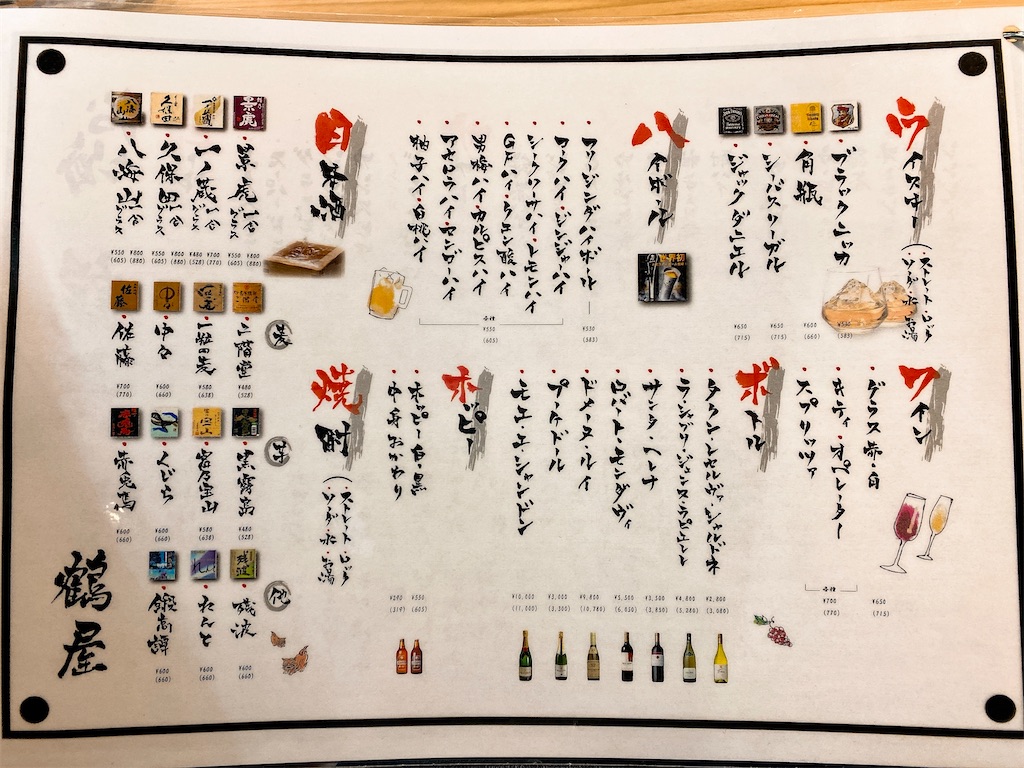 ウイスキー(ストレート・ロック ソーダ・水・お湯)
・ブラックニッカ
¥550
(385)
・角瓶
¥600
(660)
・シーバスリーガル
¥650
(715)
・ジャックダニエル
¥650
(715)
ハイボール
世界初
・フリージングハイボール
¥530
(583)
・コークハイ・ジンジャーハイ
・シークワーサーハイ・レモンハイ
・GFハイ・クエン酸ハイ
・男梅ハイ・カルピスハイ
・アセロラハイ・マンゴーハイ
・柚子ハイ・白桃ハイ
各種
¥550
(605)
日本酒
・景虎 一合 グラス
¥800
(880)
¥550
(605)
・一ノ蔵 一合 グラス
¥700
(770)
¥480
(528)
・久保田 一合 グラス
¥800
(880)
¥550
(605)
・八海山 一合 グラス
¥800
(880)
¥550
(605)
ワイン
・グラス 赤・白
¥650
(715)
・キティ・オペレーター
・スプリッツァ
各種
¥700
(770)
ボトル
¥2,800
(3,080)
¥4,800
(5,280)
・サンタ・ヘレナ
¥3,500
(3,850)
・ロバート・モンダヴィ
¥5,500
(6,050)
・ドメーヌ・ルイ
¥9,800
(10,780)
¥3,000
(3,300)
・モエ・エ・シャンドン
¥10,000
(11,000)
ホッピー
・ホッピー 白・黒
¥550
(605)
・中身おかわり
¥290
(319)
焼酎(ストレート・ロック ソーダ・水・お湯)
麦
・二階堂
¥480
(528)
・一粒の麦
¥580
(638)
・中々
¥600
(660)
・佐藤
¥700
(770)
芋
・黒霧島
¥480
(528)
・富乃宝山
¥580
(638)
・くじら
¥600
(660)
・赤兎馬
¥600
(660)
他
・残波
¥600
(660)
・れんと
¥600
(660)
・鍛高譚
¥600
(660)
鶴屋